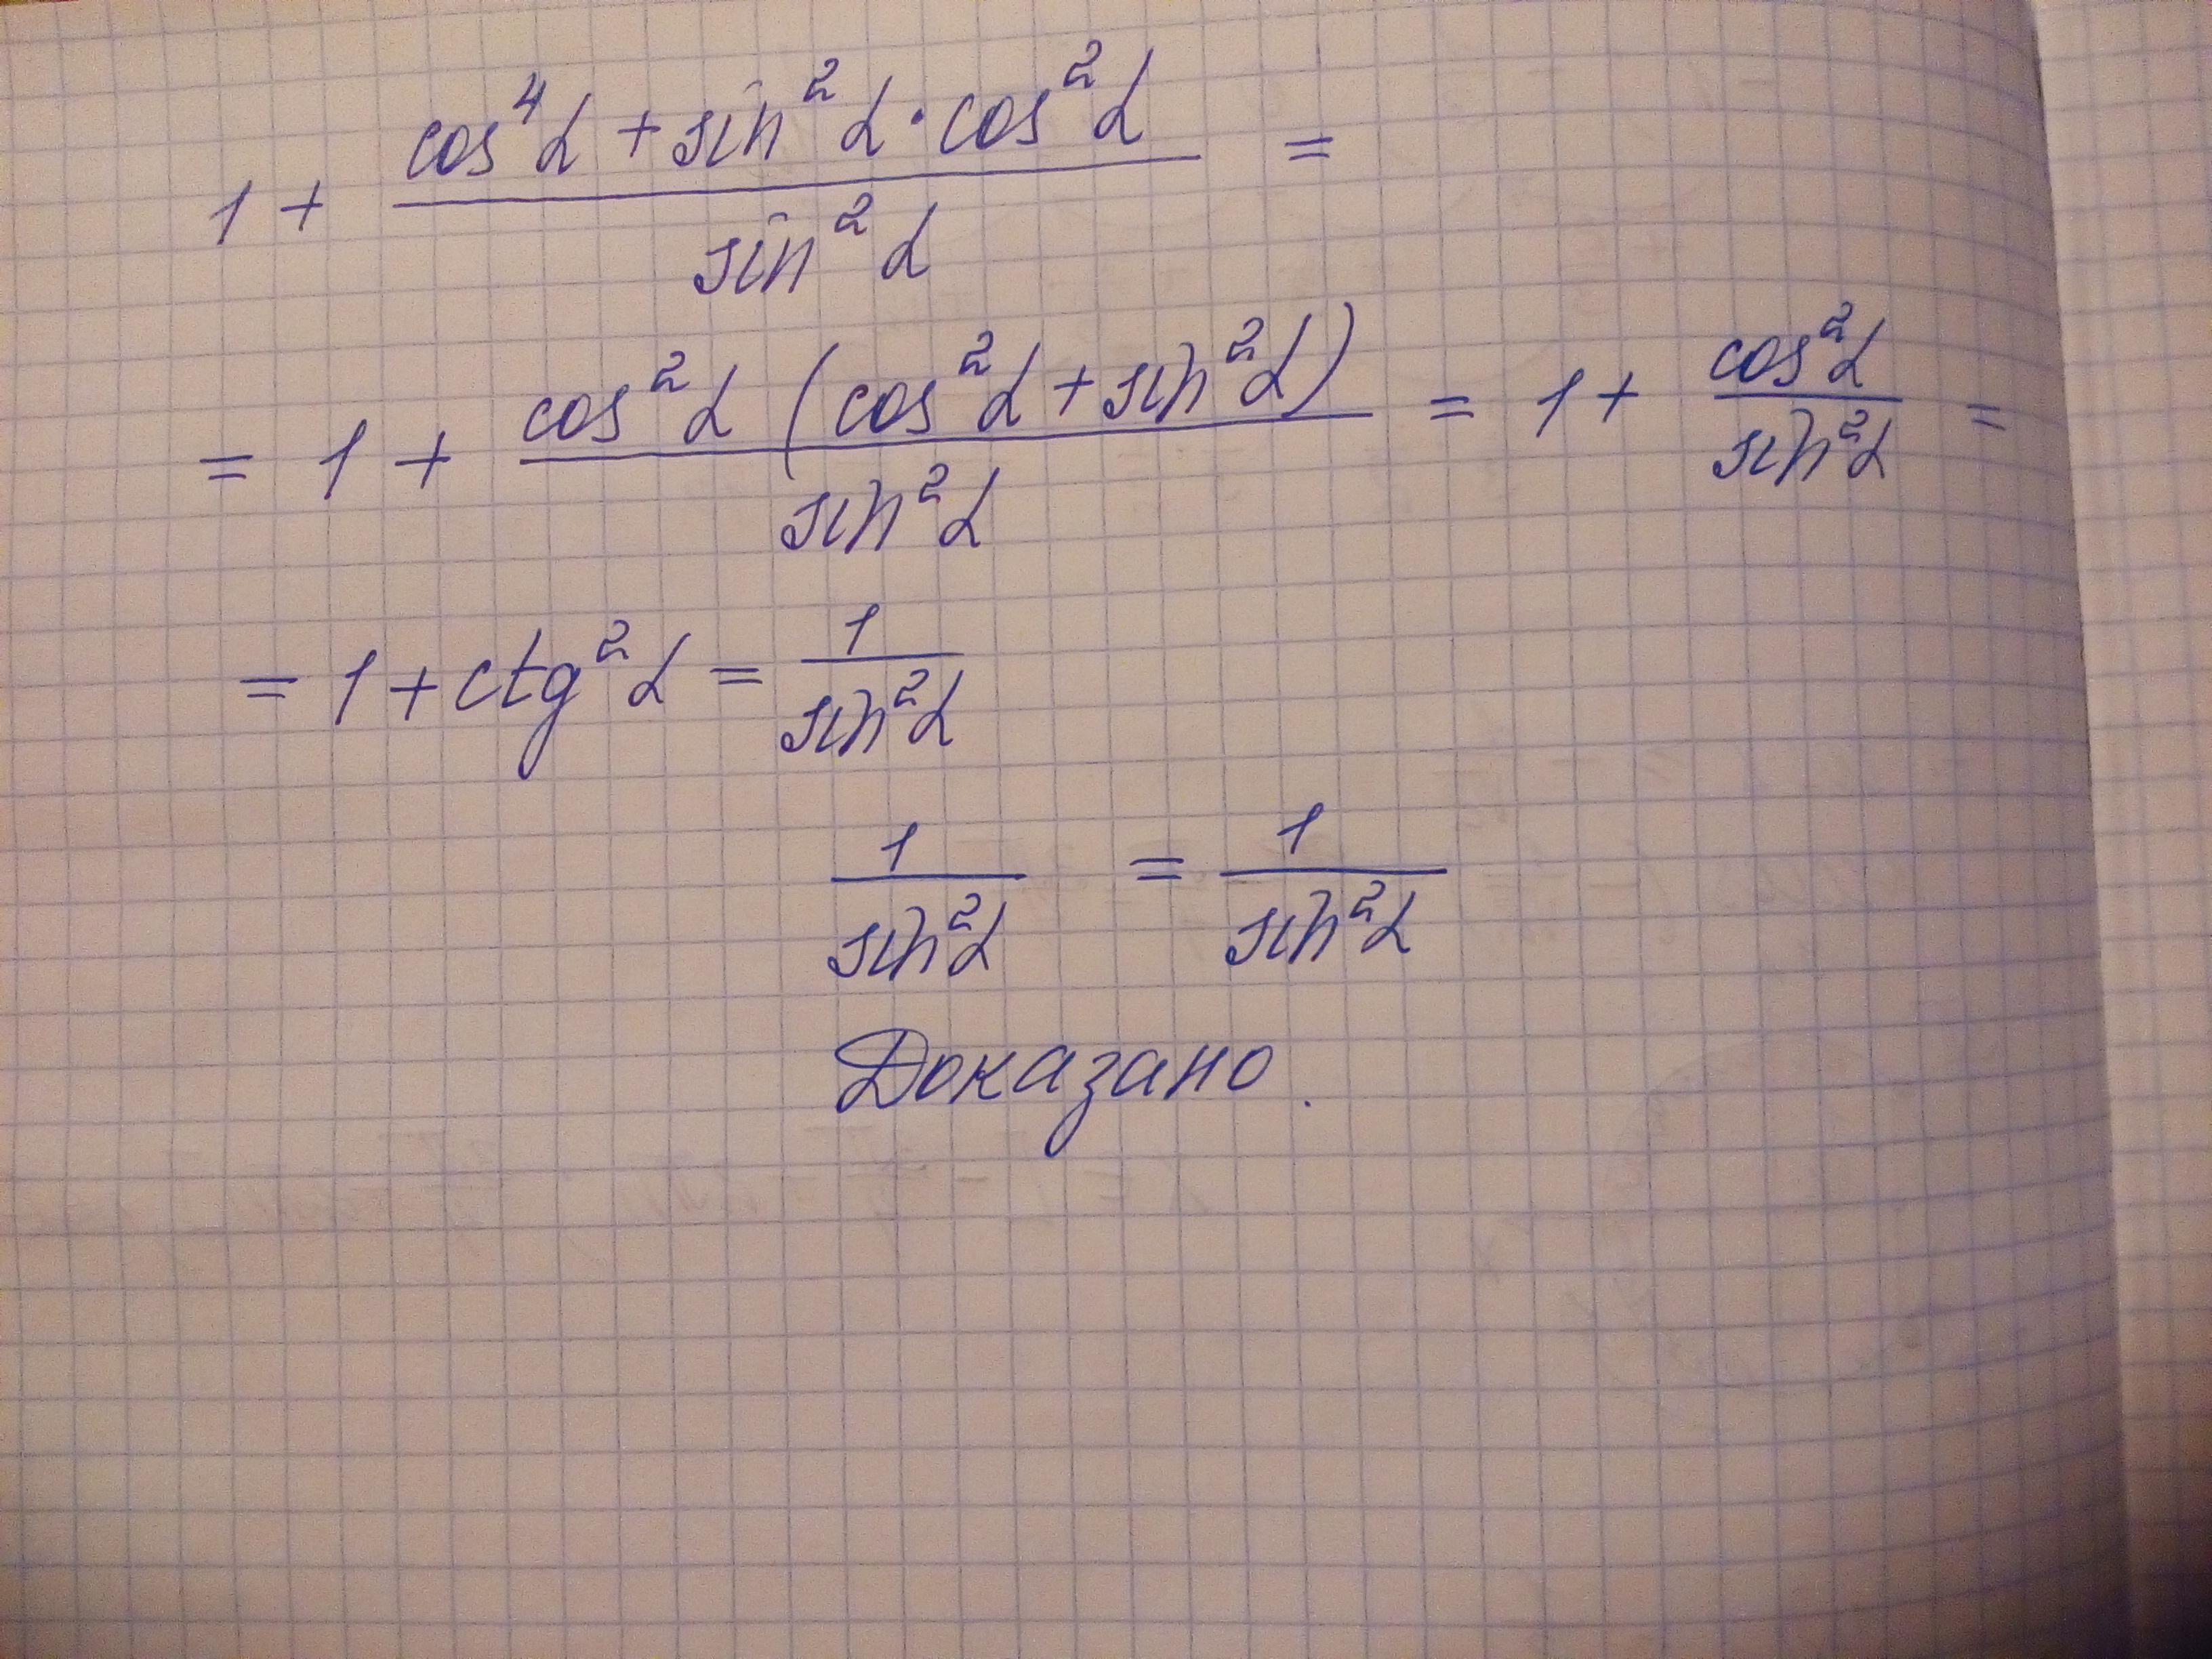 1 + (cos⁴α + sin²α · cos²α) / sin²α =
= 1 + cos²α (cos²α + sin²α) / sin²α = 1 + cos²α / sin²α =
= 1 + ctg²α = 1 / sin²α
1 / sin²α = 1 / sin²α
Доказано.